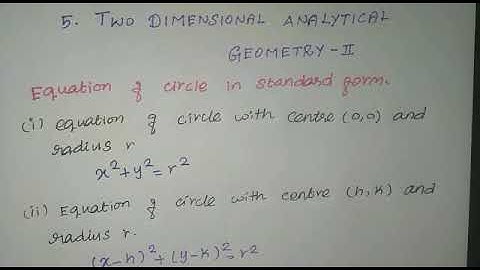 5. TWO DIMENSIONAL ANALYTICAL
GEOMETRY-II
Equation of circle in standard form.
(i) equation of circle with centre (0,0) and
radius r
x²+y²=r²
(ii) Equation of circle with centre (h,k) and
radius r.
(x-h)²+(y-k)²=r²